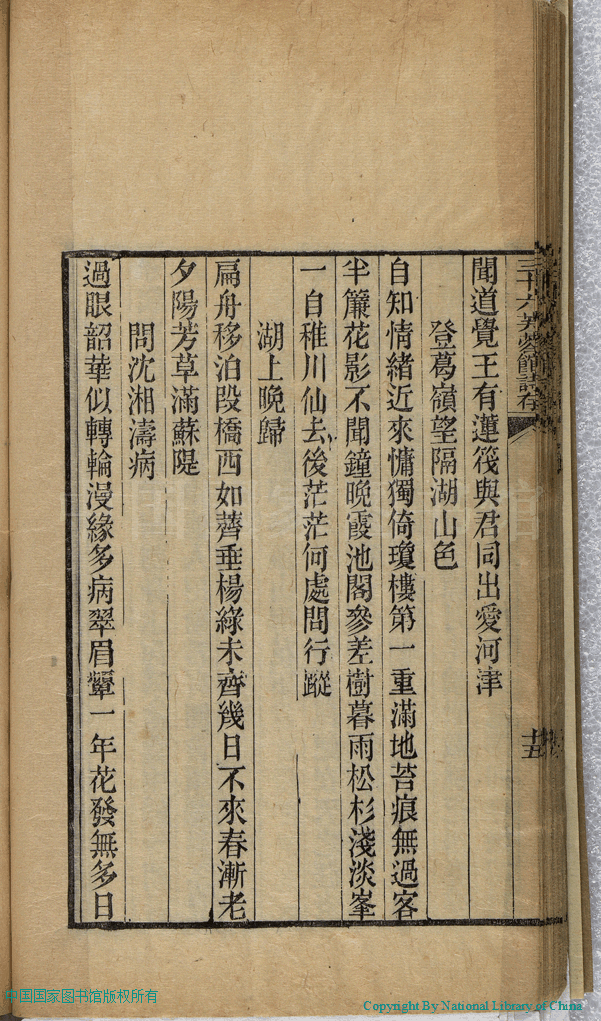 三十六芙蓉館詩存
十五
聞道覺王有蓮筏與君同出愛河津
登葛嶺望隔湖山色
自知情緒近來慵獨倚瓊樓第一重滿地苔痕無過客
半簾花影不聞鐘晚霞池閣參差樹暮雨松杉淺淡峯
一自稚川仙去後茫茫何處問行蹤
湖上晚歸
扁舟移泊段橋西如薺垂楊綠未齊幾日不來春漸老
夕陽芳草滿蘇隄
問沈湘濤病
過眼韶華似轉輪漫緣多病翠眉顰一年花發無多日
中国国家图书馆版权所有
Copyright By National Library of China